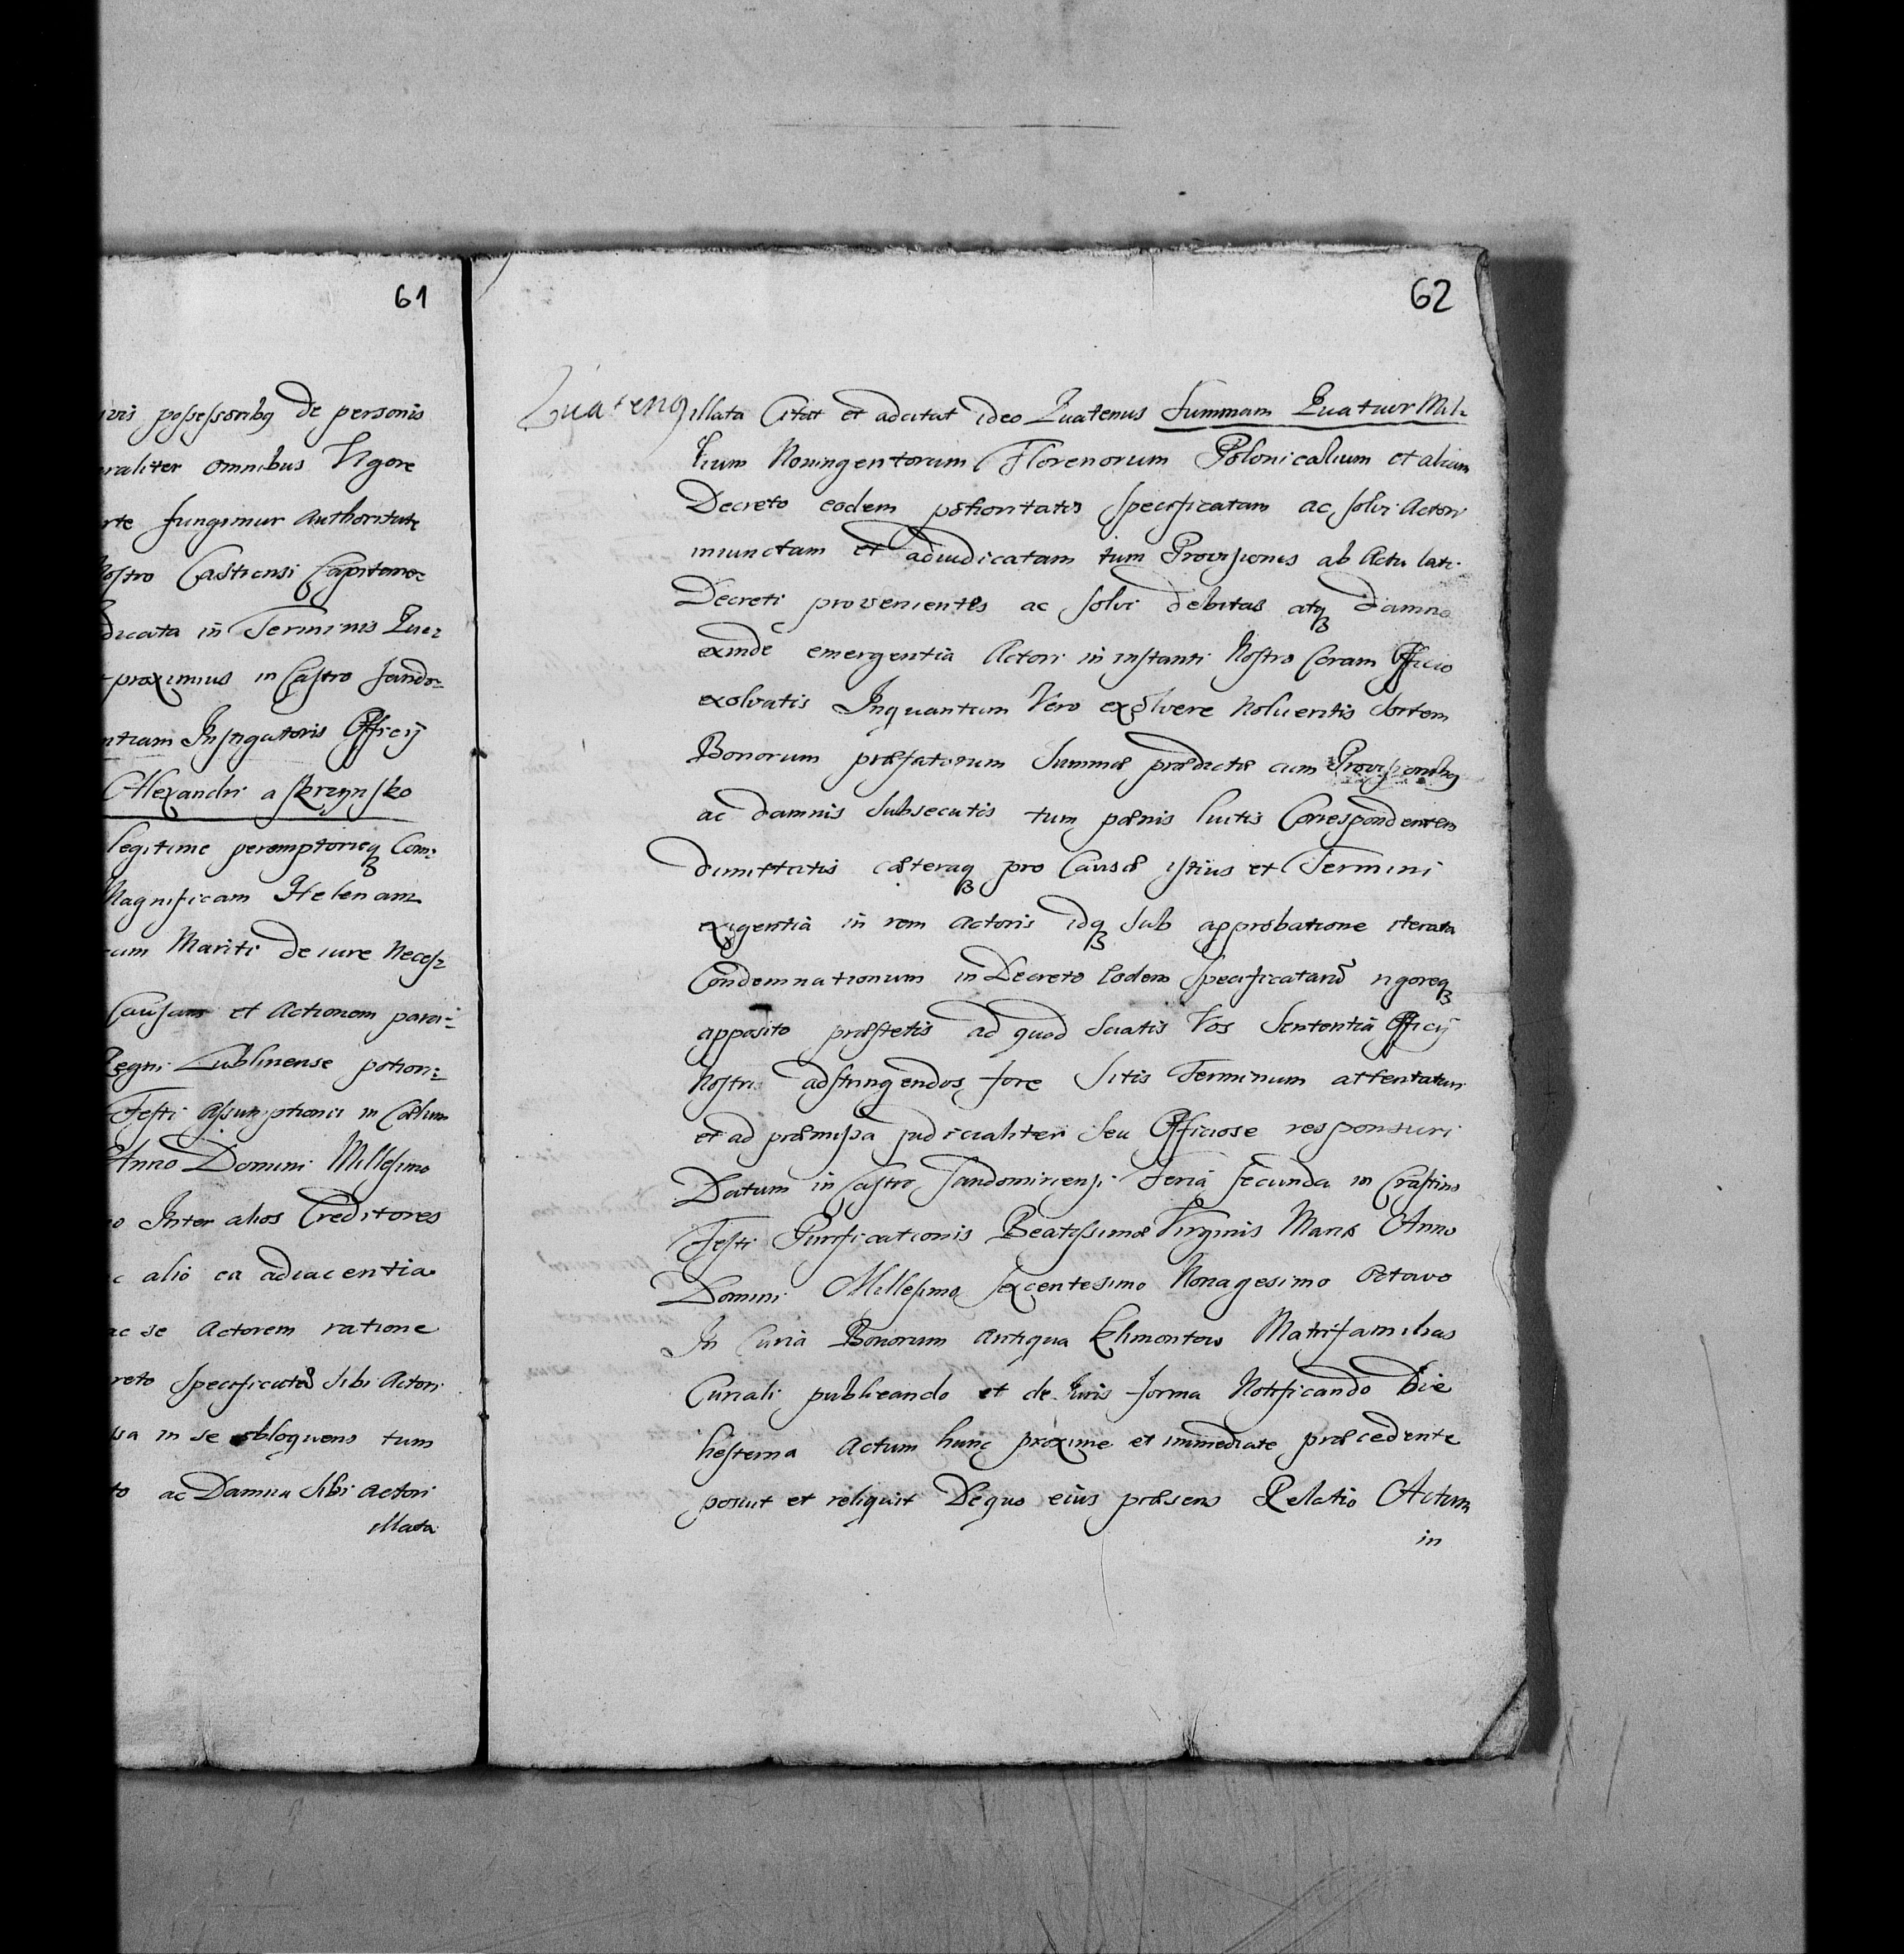 61
possessoribq de personis
omnibus Vigore
fungimur authoritate
Castrensi Capitane=
in Terminis Que=
proximius in Castro Sando=
Instigatoris Officij
Alexandri a Skrzynsko
legitime peremptorieq Com=
Magnificam Helenam
Mariti de iure Neces=
Causam et Actionem
Regni Lublinense potiori=
Festi Assumptionis in Cœlum
Anno Domini Millesimo
Inter alios Creditores
alio ea adiacentia
ac se Actorem ratione
Specificatas sibi Actori
in se obloquens tum
ac Damna sibi Actori
illata
62
Quatenq illata Citat et adcitat ideo Quatenus Summam Quatuor Mil=
lium Noningentorum Florenorum Polonicalium et aliam
Decreto eodem potioritatis specificatam ac solvi Actori
iniunctam et adiudicatam tum Provisiones ab Actu lati
Decreti provenientes ac solvi debitas atq damna
exinde emergentia Actori in instanti Nostro Coram Officio
exolvatis Inquantum Vero exolvere Nolueritis Sortem
Bonorum præfatorum Summæ prædictæ cum Provisionibq
ac damnis subsecutis tum pœnis luitis Correspondentem
dimittatis cæteraq pro Causæ istius et Termini
exigentia in rem Actoris idq sub approbatione iterata
Condemnationum in Decreto Eodem Specificatarũ rigoreq
apposito præstetis ad quod Sciatis Vos Sententia Officij
Nostri adstringendos fore Sitis Terminum attentaturi
et ad præmissa judicialiter seu Officiose responsuri
Datum in Castro Sandomiriensi Feria secunda in Crastino
Festi Purificationis Beatissimæ Virginis Mariæ Anno
Domini Millesimo Sexcentesimo Nonagesimo Octavo
In Curia Bonorum antiqua Klimontow Matrifamilias
Curiali publicando et de Iuris forma Notificando Die
hesterna Actum hunc proxime et immediate præcedente
posuit et reliquit De quo eius præsens Relatio Actum
in